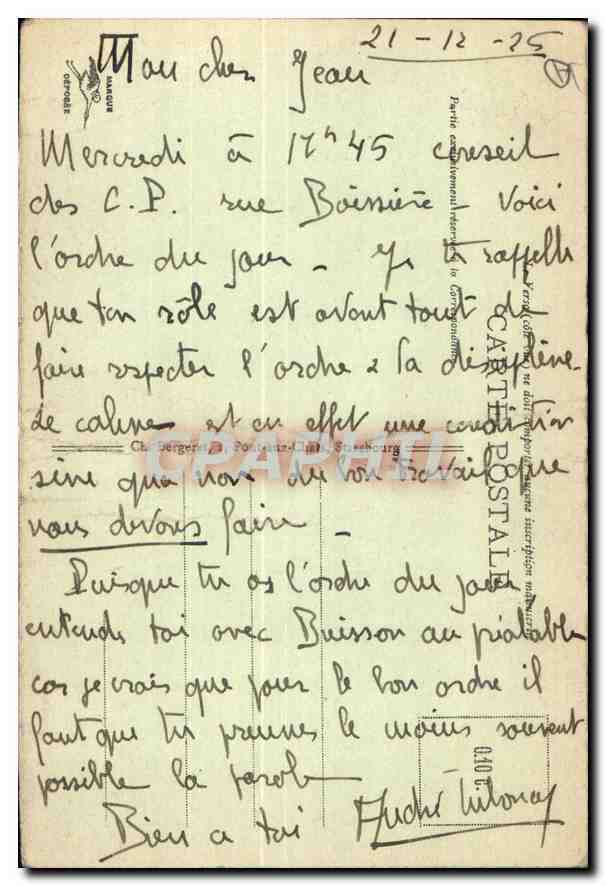 21-12-25
Mon cher Jean
Mercredi à 17h45 conseil
des C.P. rue Boissière - Voici
l'ordre du jour - Je te rappelle
que ton rôle est avant tout de
faire respecter l'ordre & la discipline -
Le calme est en effet une condition
sine qua non du bon travail que
nous devons faire -
Puisque tu as l'ordre du jour,
entends toi avec Buisson au préalable
car je crois que pour le bon ordre il
faut que tu prennes le moins souvent
possible la parole
Bien a toi André
MARQUE
DÉPOSÉE
Partie exclusivement réservée à la Correspondance
CARTE POSTALE
Ch. Bergeret, Strasbourg
0.10 c.
CPAPHIL